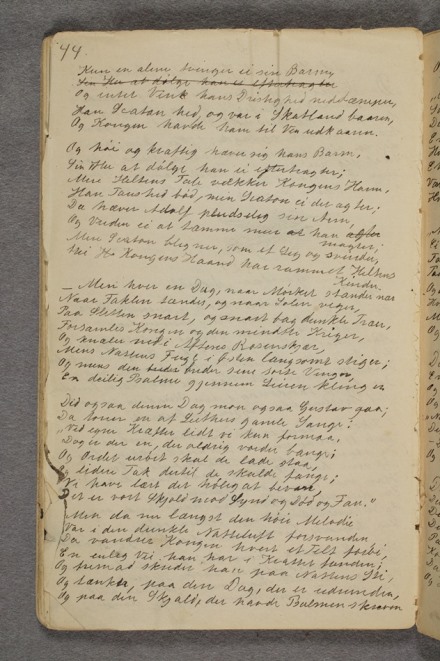 44.
Kun en alene tvinger ei sin Barm,
Sin Ild at dölge han ei eftertragter
Og intet Venk hans Dristighed nedtæmper,
Han Seaton hed, og var i Skotland baaren,
Og Kongen havde ham til Ven udkaaren.
Og höi og kraftig hæver sig hans Barm,
Sin Ild at dölge han ei eftertragter;
Mens Heltens Tale vækker Kongens Harm,
Han Taushed böd, men Seaton ei det agter;
Da hæver Adolf pludselig sin Arm
Og Vreden ei at tæmme mer han
magter;
Men Seaton blegner, som et Liig og svinder,
thi Kongens Haand har rammet Heltens
Kinder.
— Men hver en Dag, naar Mörket stander nær
Naar Faklen tændes, og naar Solen viger,
Paa Sletten snart, og snart bag dunkle Træer,
Forsamles Kongen og den mindste Kriger,
Og knæler ned i Aftens Rosenskjær,
Mens Nattens Fugl i Östen langsomt stiger;
Og mens den breder sine sorte Vinger,
En deilig Psalme gjennem Leiren klinger
Did ogsaa denne Dag mon ogsaa Gustav gaa;
Da toner en af Luthers gamle Sange:
"Ved egne Kræfter lidt vi kun formaa,
Dog er der en, der aldrig vorder bange;
Og Ordet urört skal de lade staa,
og liden Tak dertil de skulde fange;
Vi have lært det helligt at bevare
Det er vort Skjold mod Synd og Död og Fare."
Men da nu længst den höie Melodie
Var i den dunkle Natteluft forsvunden,
Da vandrer Kongen hvert et Telt forbi,
En enlig Vei han har i Krattet funden;
Og fremad skrider han paa Nattens Sti,
Og tænkte, paa den Dag, der er udrunden,
Og paa den Skjald, der havde Psalmen skreven